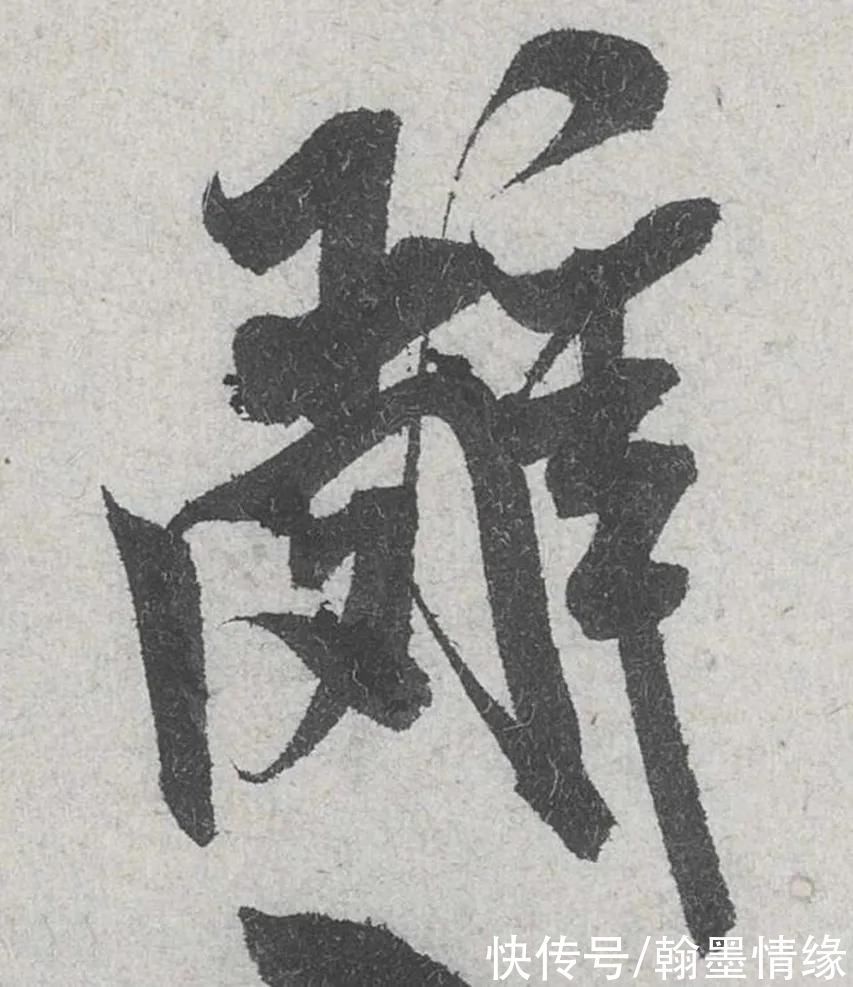 辭
快传号/翰墨情缘